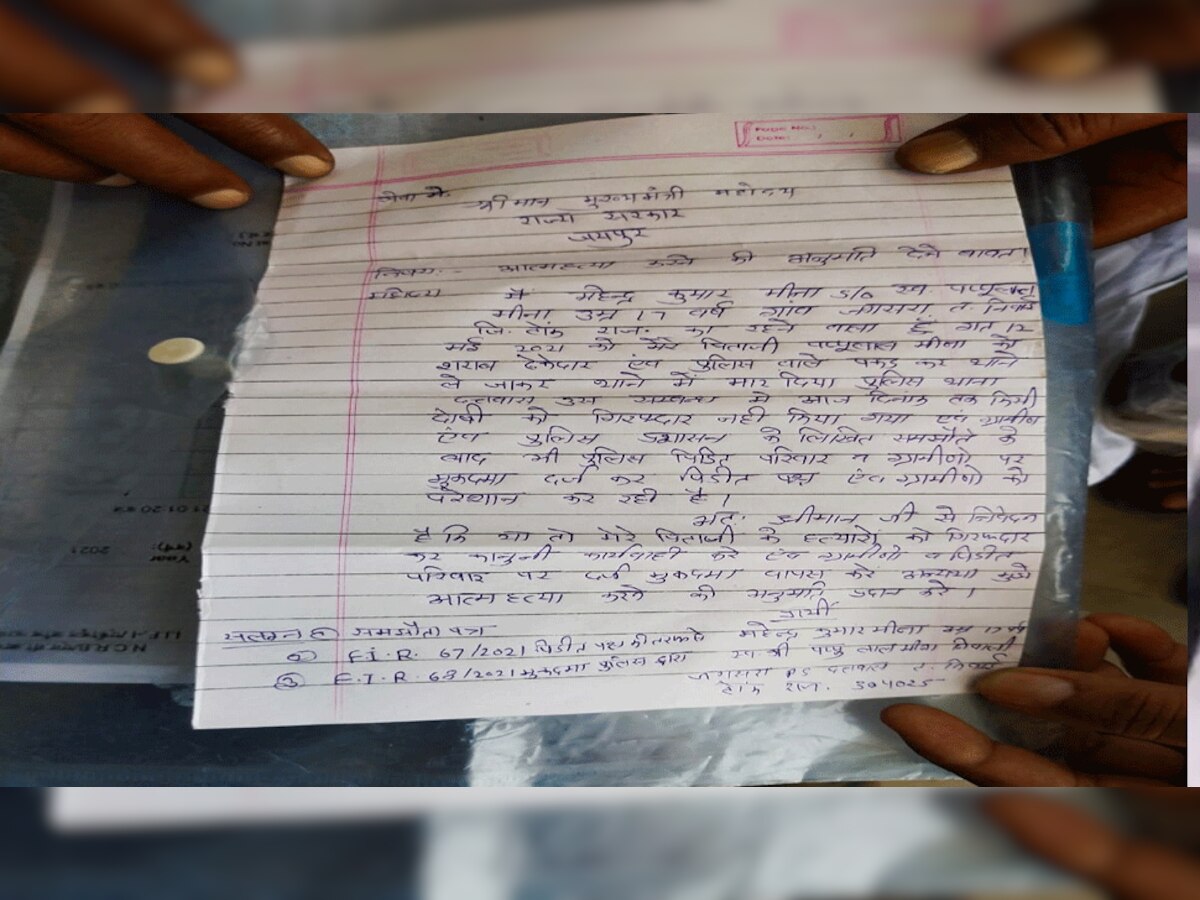 PAGE NO.:
DATE: / /
सेवा में,
श्रीमान मुख्यमंत्री महोदय
राज्य सरकार
जयपुर
विषय:- आत्महत्या करने की अनुमति देने बाबत।
महोदय
में महेन्द्र कुमार मीना S/o स्व. पप्पुलाल
मीना उम्र 17 वर्ष गांव जगसरा त. निवाई
जि. टोंक राज. का रहने वाला हूँ गत 12
मई 2021 को मेरे पिताजी पप्पुलाल मीना को
शराब ठेकेदार एंव पुलिस वाले पकड़ कर थाने
ले जाकर थाने में मार दिया पुलिस थाना
दत्तवास उस सम्बन्ध मे आज दिनांक तक किसी
दोषी को गिरफ्दार नही किया गया एंव ग्रामीण
एंव पुलिस प्रशासन के लिखित समझौते के
बाद भी पुलिस पिडित परिवार व ग्रामीणो पर
मुकदमा दर्ज कर पिडीत पक्ष एंव ग्रामीणो को
परेशान कर रही है।
अत: श्रीमान जी से निवेदन
है कि या तो मेरे पिताजी के हत्यारो को गिरफ्दार
कर कानुनी कार्यवाही करे एंव ग्रामीणो व पिडीत
परिवार पर दर्ज मुकदमा वापस करे अन्यथा मुझे
आत्म हत्या करने की अनुमति प्रदान करे।
प्रार्थी
सलंग्न समझौता पत्र
महेन्द्र कुमार मीना उम्र 17 वर्ष
② F.I.R. 67/2021 पिडीत पक्ष की तरफ से
स्व. श्री पप्पु लाल मीना निवासी
③ F.I.R 68/2021 मुकदमा पुलिस द्वारा
जगसरा PS दत्तवास त. निवाई
टोंक राज. 304025